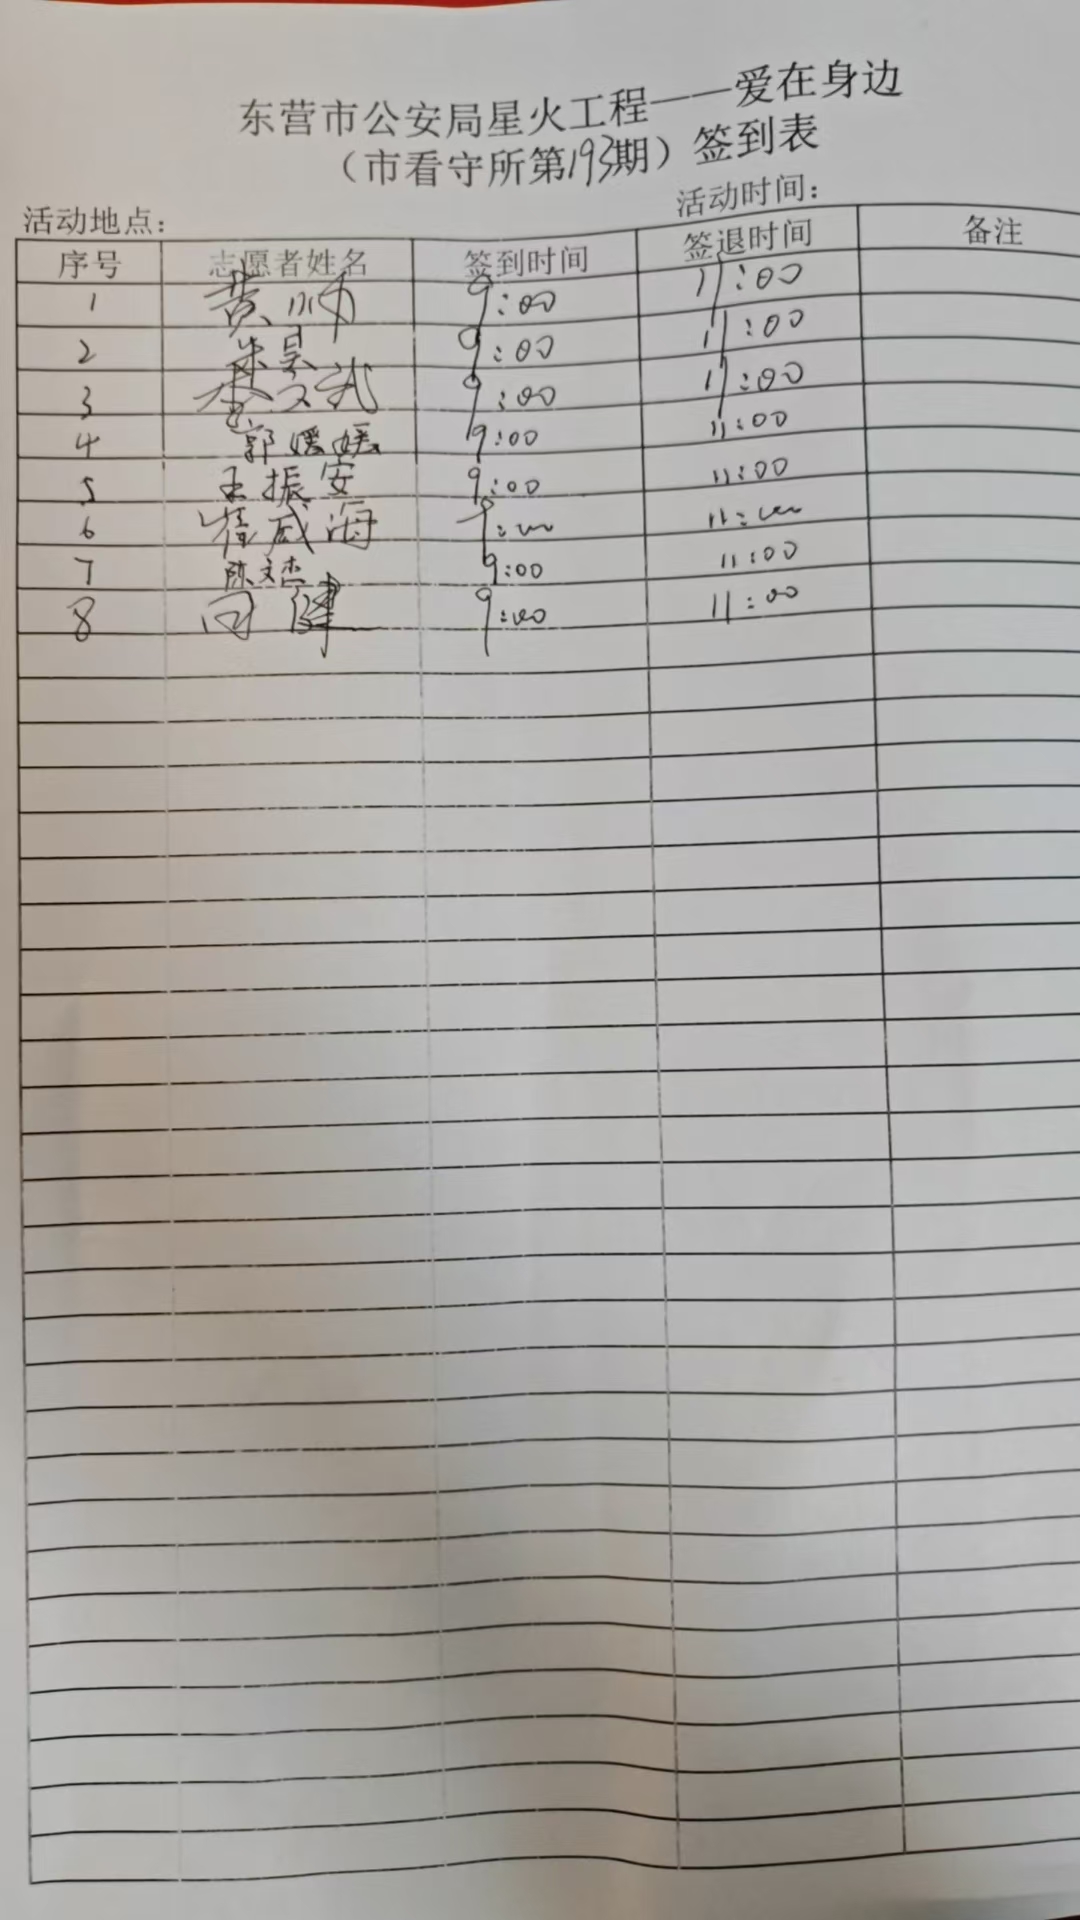 东营市公安局星火工程——爱在身边
（市看守所第193期）签到表
活动地点： 活动时间：
序号 志愿者姓名 签到时间 签退时间 备注
1 黄帅 9:00 11:00
2 朱昊 9:00 11:00
3 9:00 11:00
4 郭媛媛 9:00 11:00
5 王振安 9:00 11:00
6 崔威海 9:00 11:00
7 陈文杰 9:00 11:00
8 闫健 9:00 11:00